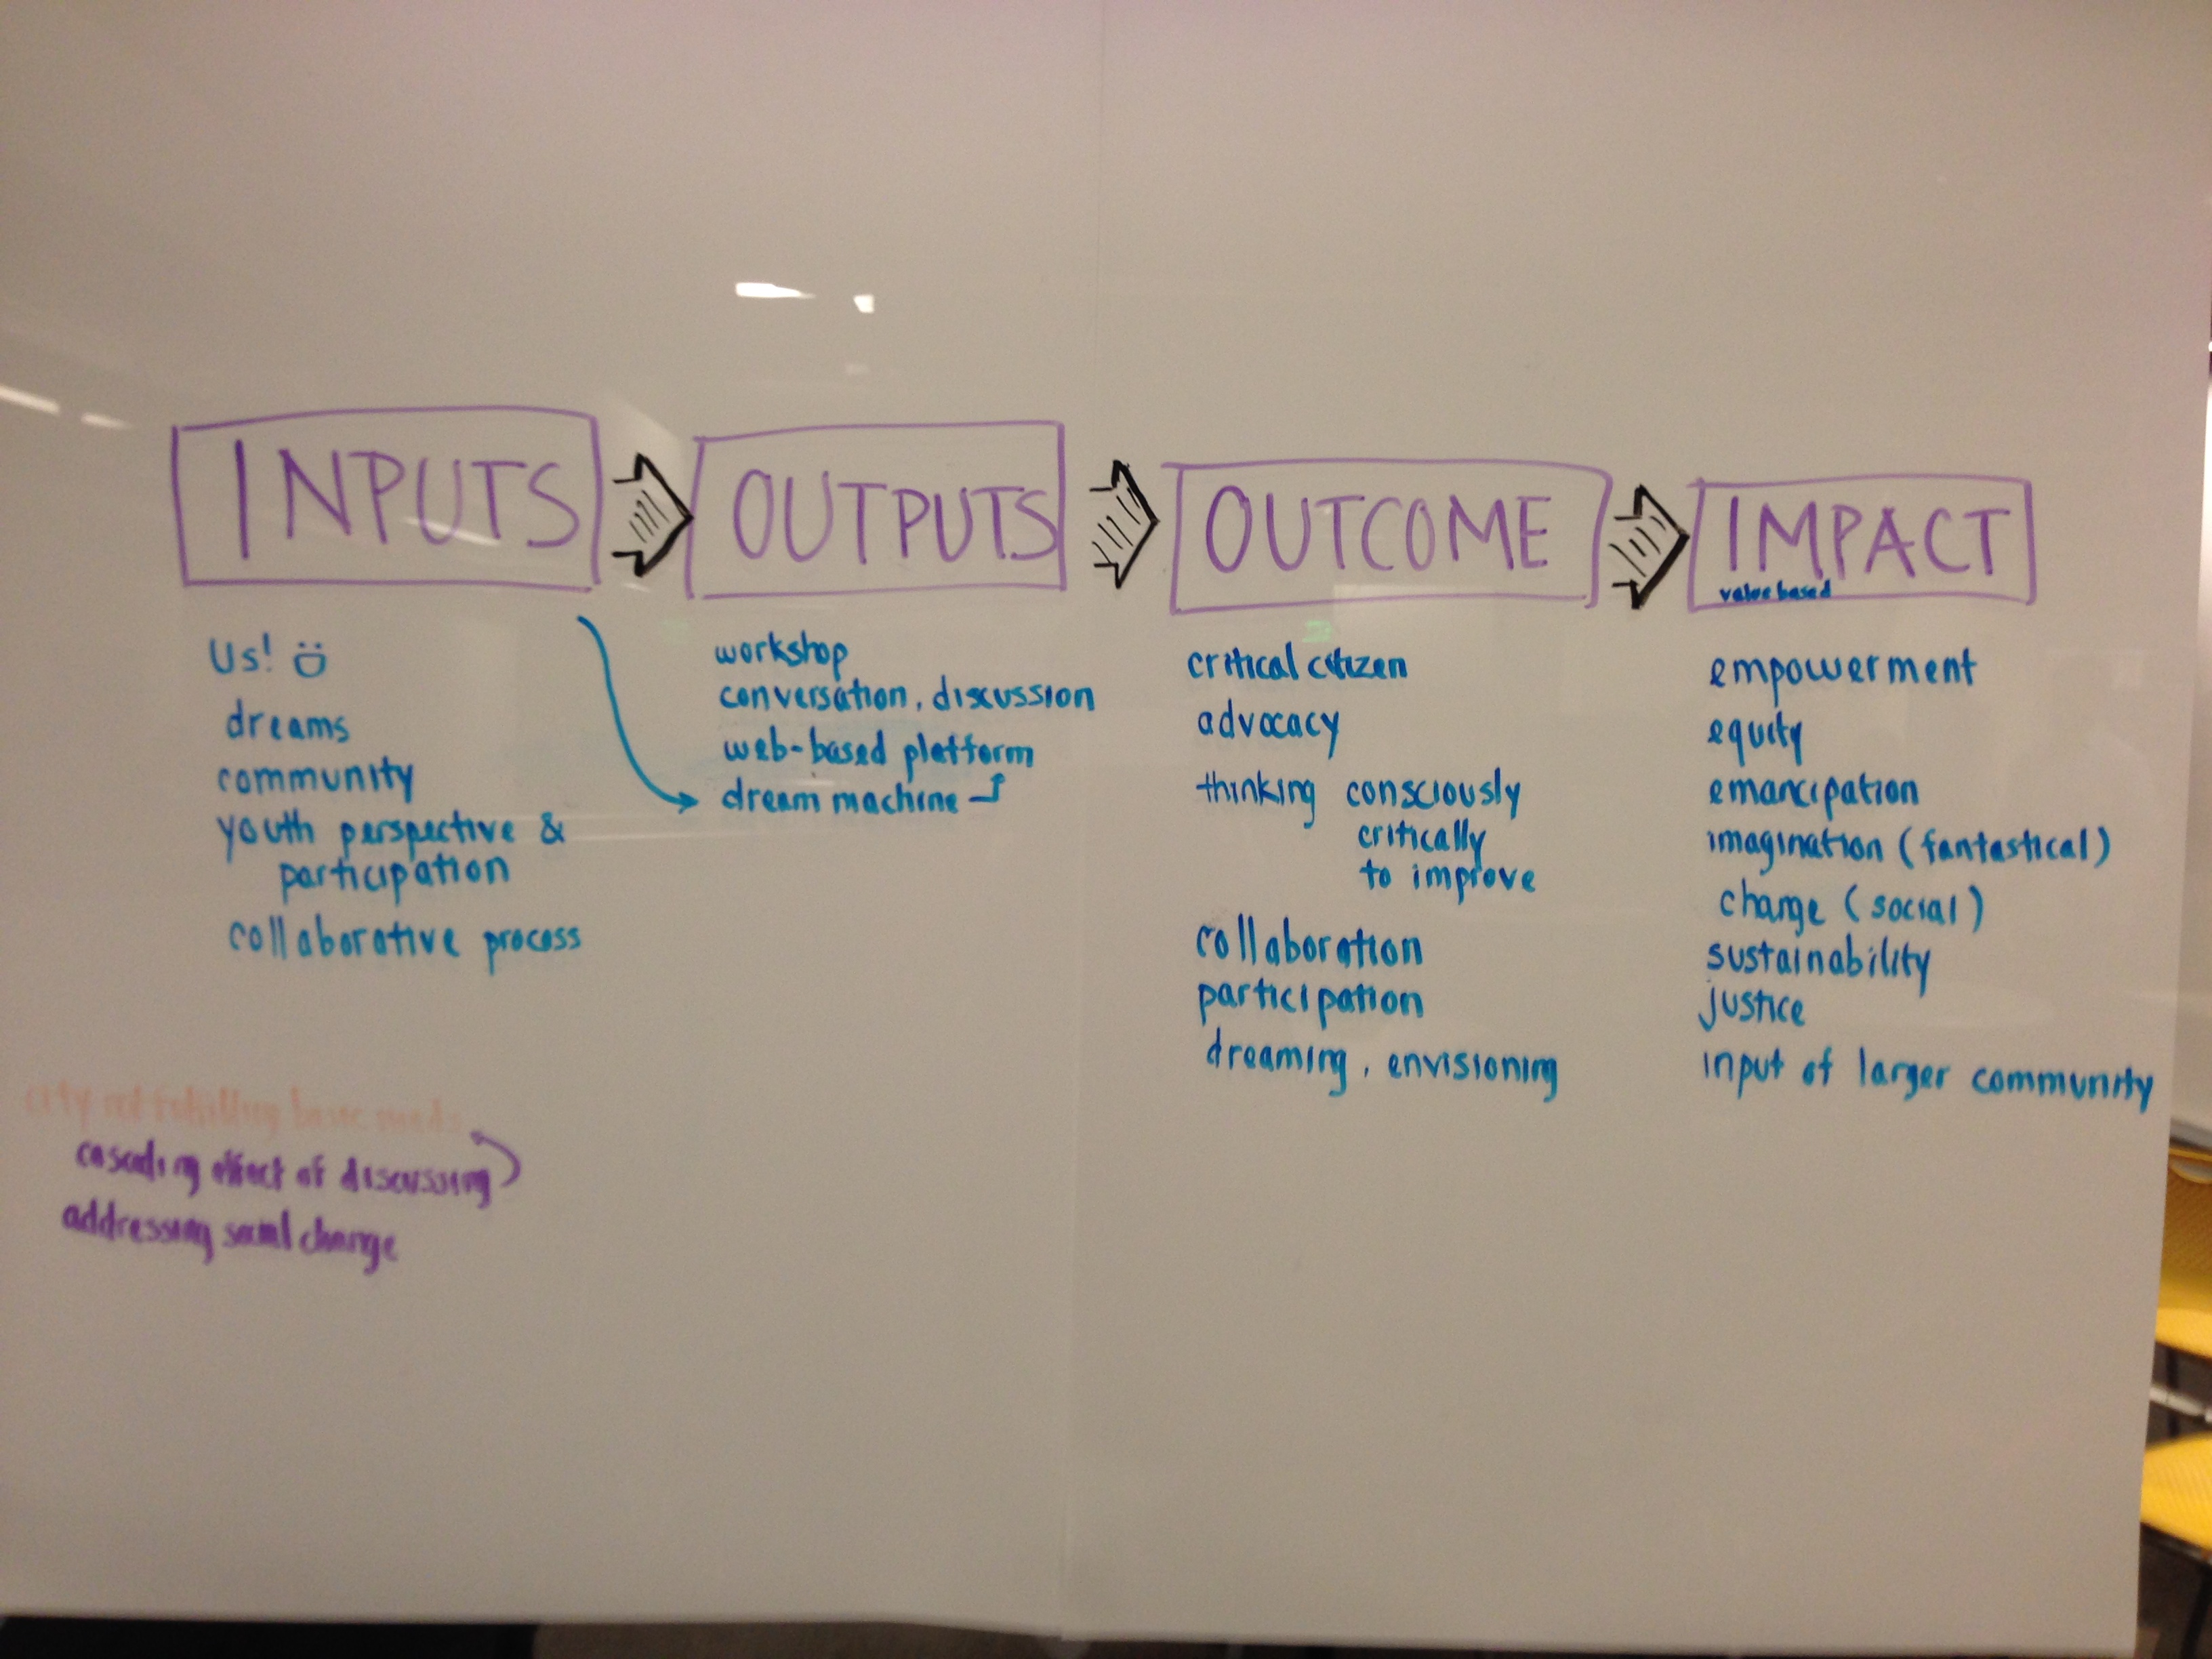 INPUTS
Us!
dreams
community
youth perspective &
participation
collaborative process
OUTPUTS
workshop
conversation, discussion
web-based platform
dream machine
OUTCOME
critical citizen
advocacy
thinking consciously
critically
to improve
collaboration
participation
dreaming, envisioning
IMPACT
value based
empowerment
equity
emancipation
imagination (fantastical)
change (social)
sustainability
justice
input of larger community
city not fulfilling basic needs
cascading effect of discussing
addressing social change